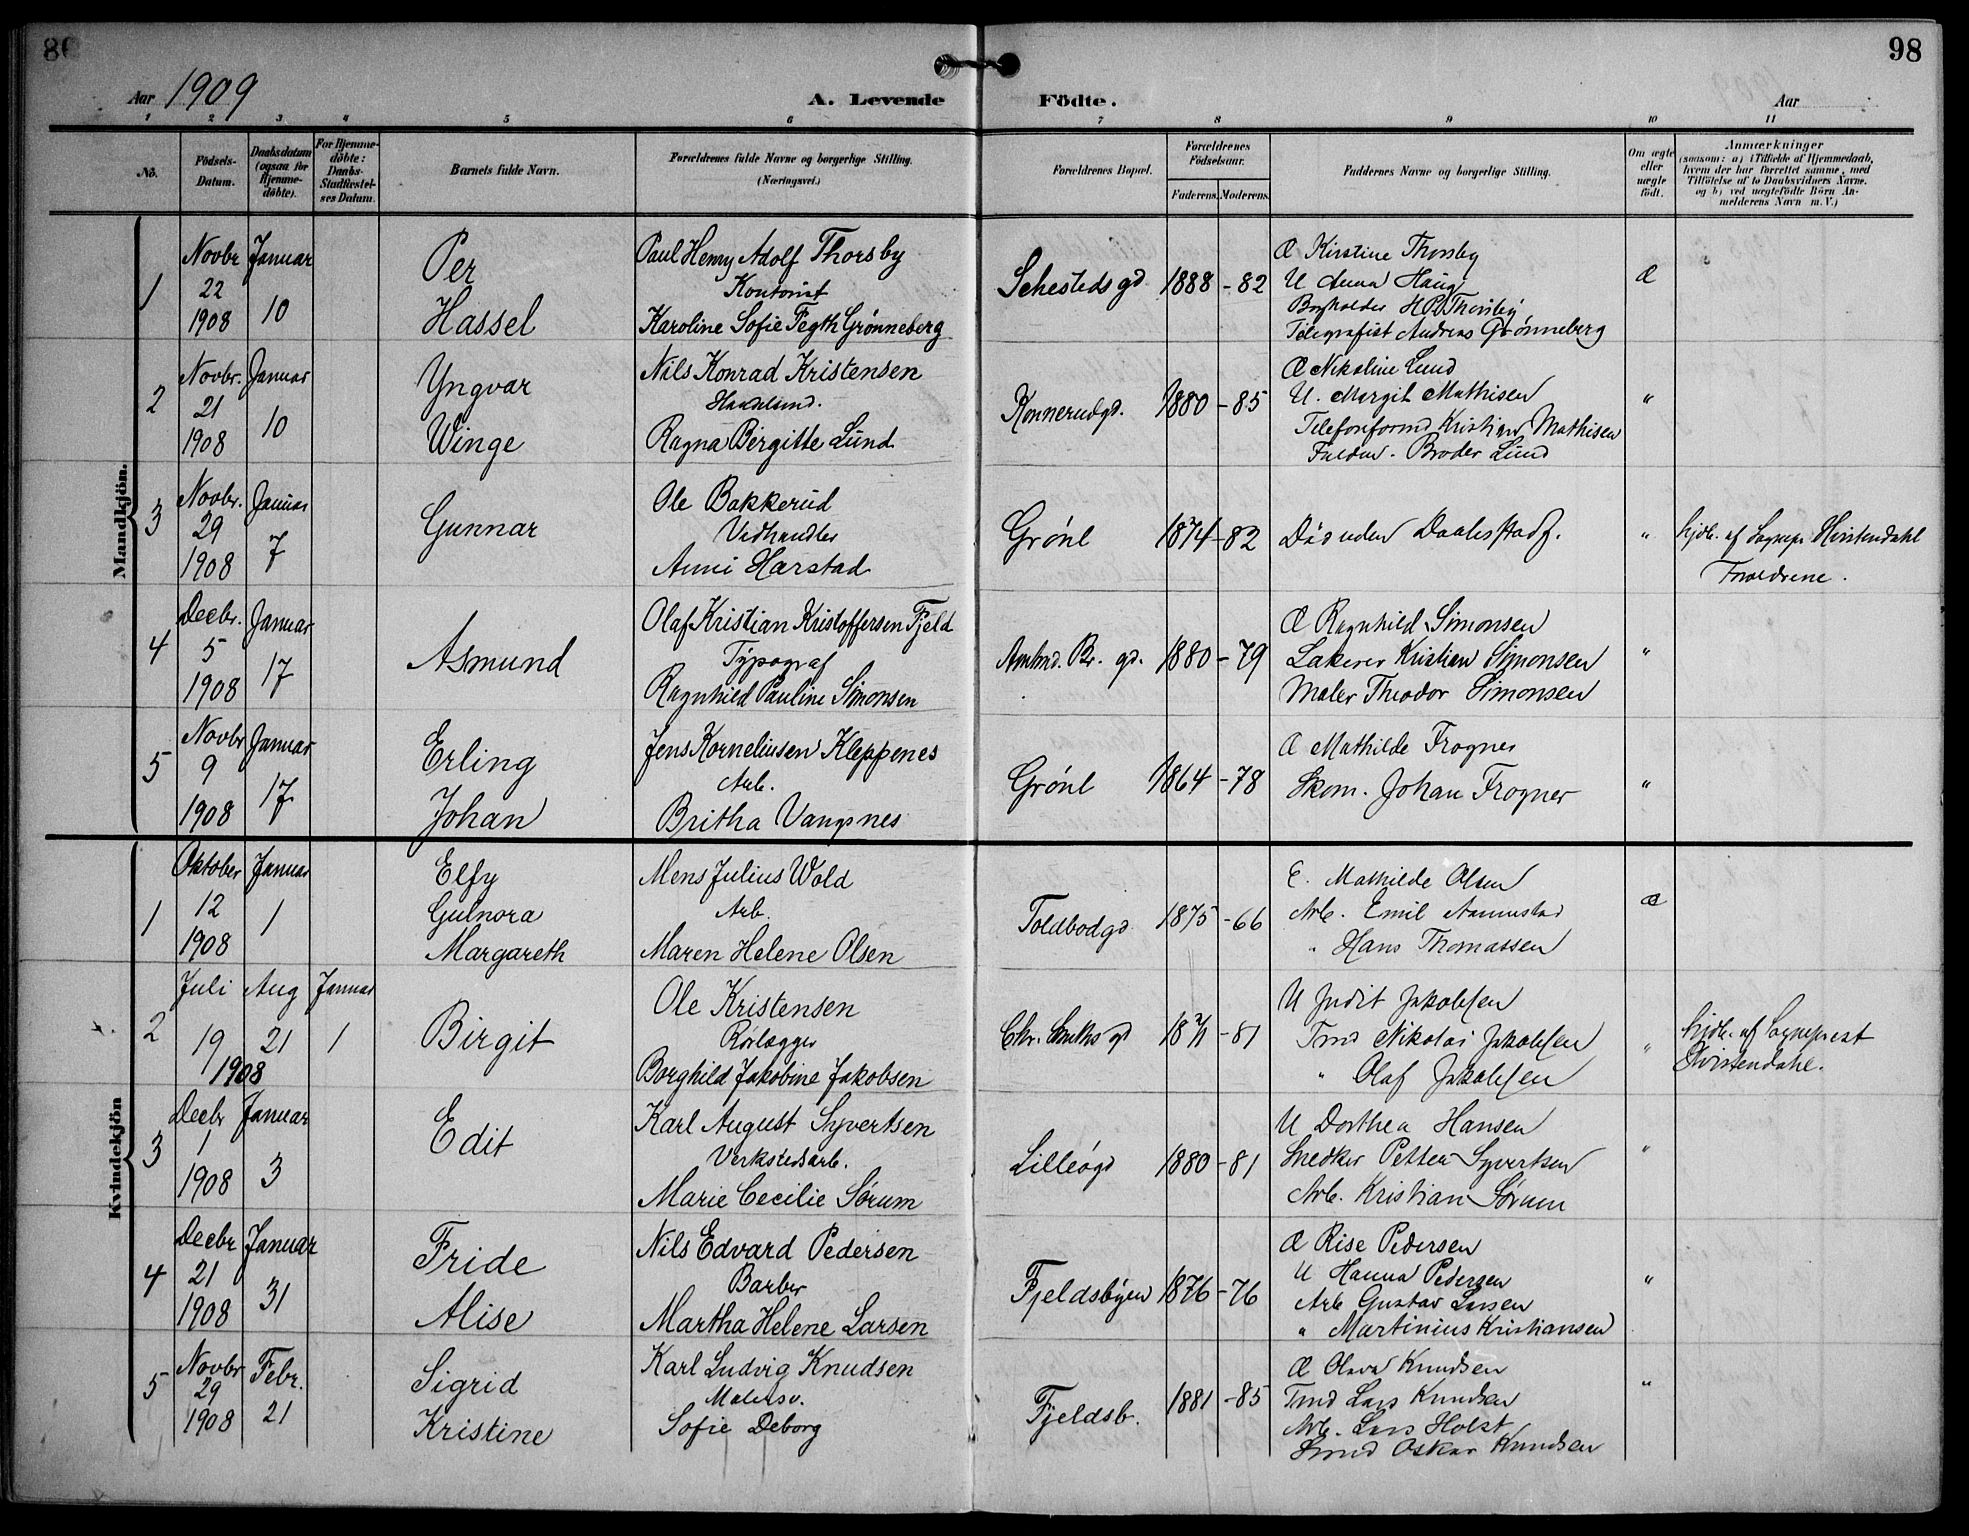 98
Aar 1909
A. Levende
Födte.
Aar
1 2 3 4 5 6 7 8 9 10 11
No.
Födsels-Datum.
Daabsdatum (ogsaa for Hjemme-döbte).
For Hjemme-döbte: Daabs-Stadfæstel-ses Datum.
Barnets fulde Navn.
Forældrenes fulde Navne og borgerlige Stilling.
(Næringsvei.)
Forældrenes Bopæl.
Forældrenes Födselsaar.
Faderens. Moderens.
Faddernes Navne og borgerlige Stilling.
Om ægte eller uægte födt.
Anmærkninger
(saasom: a) i Tilfælde af Hjemmedaab,
hvem der har forrettet samme, med
Tilföielse af to Daabsvidners Navne.
og b) ved uægtefödte Börn An-
melderens Navn m. V.)
Mandkjön.
1
Novbr 22 1908
Januar 10
Per
Hassel
Paul Henry Adolf Thorsby
Kontorist
Karoline Sofie Fegth Grønneberg
Sehesteds gd
1888 - 82
Æ Kirstine Thorsby
U Anna Haug
Telegrafist Andreas Grønneberg
Æ
2
Novbr. 21 1908
Januar 10
Yngvar
Winge
Nils Konrad Kristensen
Ragna Birgitte Lund
Konnerudgd.
1880 - 85
Æ Nikoline Lund
U. Margit Mathisen
Telefonformd Kristian Mathisen
Broder Lund
"
3
Novbr. 29 1908
Januar 7
Gunnar
Ole Bakkerud
Vedhandler
Anni Harstad
Grønl
1874 - 82
Død uden Daabsstadf.
"
hjdb. af
Forældrene.
4
Decbr. 5 1908
Januar 17
Asmund
Olaf Kristian Kristoffersen Fjeld
Typograf
Ragnhild Pauline Simonsen
Amtmd. Bl. gd.
1880 - 79
Æ Ragnhild Simonsen
Lakerer Kristian Simonsen
Maler Theodor Simonsen
"
5
Novbr 9 1908
Januar 17
Erling
Johan
Jens Korneliusen Kleppenes
Arb.
Britha Vangsnes
Grønl
1864 - 78
Æ Mathilde Frogner
Skom. Johan Frogner
"
Kvindekjön
1
Oktober 12 1908
Januar 1
Elfy
Gulnora
Margareth
Mens Julius Wold
Arb.
Maren Helene Olsen
Toldbodgd.
1875 - 66
E. Mathilde Olsen
Arb. Emil
" Hans Thomassen
Æ
2
Juli 19 1908
Aug 21
Januar 1
Birgit
Ole Kristensen
Rørlægger
Borghild Jakobine Jakobsen
81
U Judit Jakobsen
Tmd Nikolai Jakobsen
" Olaf Jakobsen
"
hjdb. af Sogneprest
Hvistendahl.
3
Decbr 1 1908
Januar 3
Edit
Karl August Syvertsen
Verkstedsarb.
Marie Cecilie Sørum
Lilleøgd
1880 - 81
U Dorthea Hansen
Snedker Petter Syvertsen
Arb. Kristian Sørum
"
4
Decbr 21 1908
Januar 31
Fride
Alise
Nils Edvard Pedersen
Barber
Martha Helene Larsen
Fjeldsbyen
1876 - 76
Æ Rise Pedersen
U Hanna Pedersen
Arb Gustav Larsen
" Martinius Kristiansen
"
5
Novbr 29 1908
Febr. 21
Sigrid
Kristine
Karl Ludvig Knudsen
Malersv.
Sofie Deborg
Fjeldsb.
1881 - 85
Æ Olava Knudsen
Tmd Lars Knudsen
Arb. Lars Holst
Oskar Knudsen
"